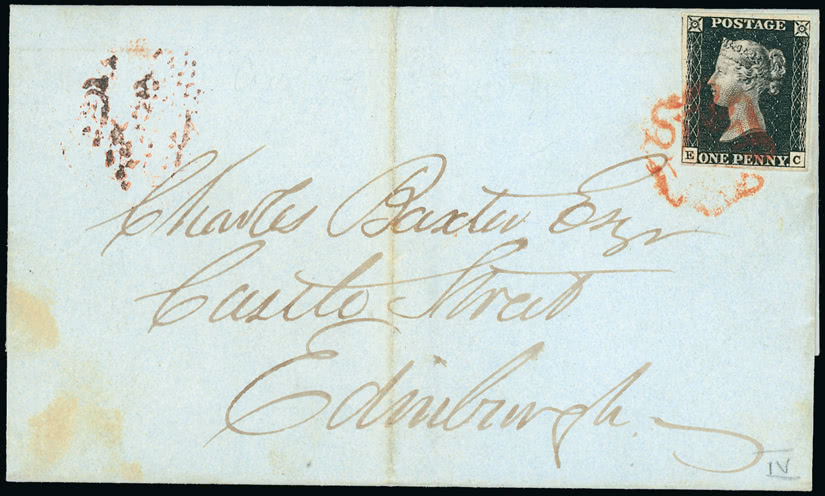 POSTAGE
E ONE PENNY C
Charles Baxter Esqr
Castle Street
Edinburgh
IV